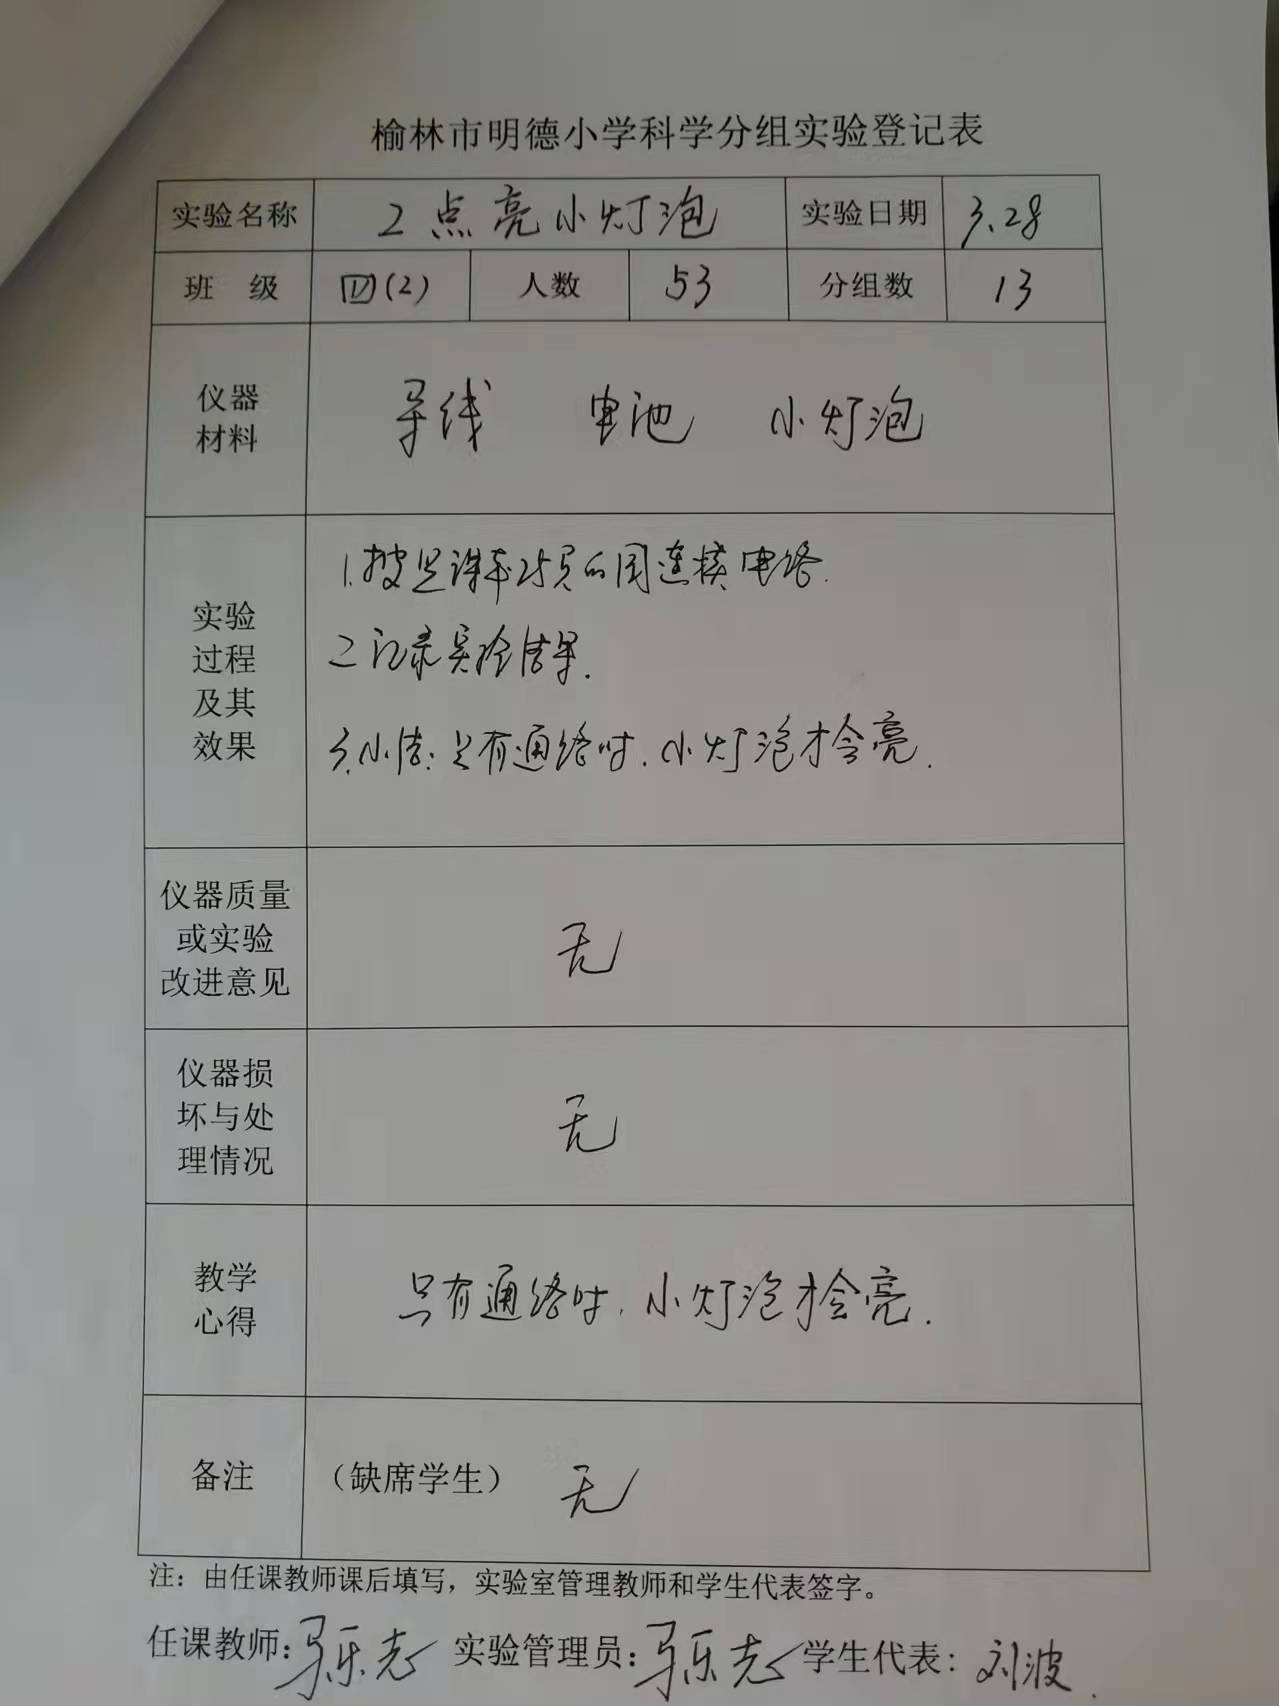 榆林市明德小学科学分组实验登记表
实验名称 2 点亮小灯泡 实验日期 3.28
班 级 四(2) 人数 53 分组数 13
仪器
材料
导线 电池 小灯泡
实验
过程
及其
效果
1.按照课本25页的图连接电路.
2 记录实验结果.
3.小结:只有通路时.小灯泡才会亮.
仪器质量
或实验
改进意见
无
仪器损
坏与处
理情况
无
教学
心得
只有通路时.小灯泡才会亮.
备注 (缺席学生) 无
注：由任课教师课后填写，实验室管理教师和学生代表签字。
任课教师:马乐志 实验管理员:马乐志 学生代表:刘波.